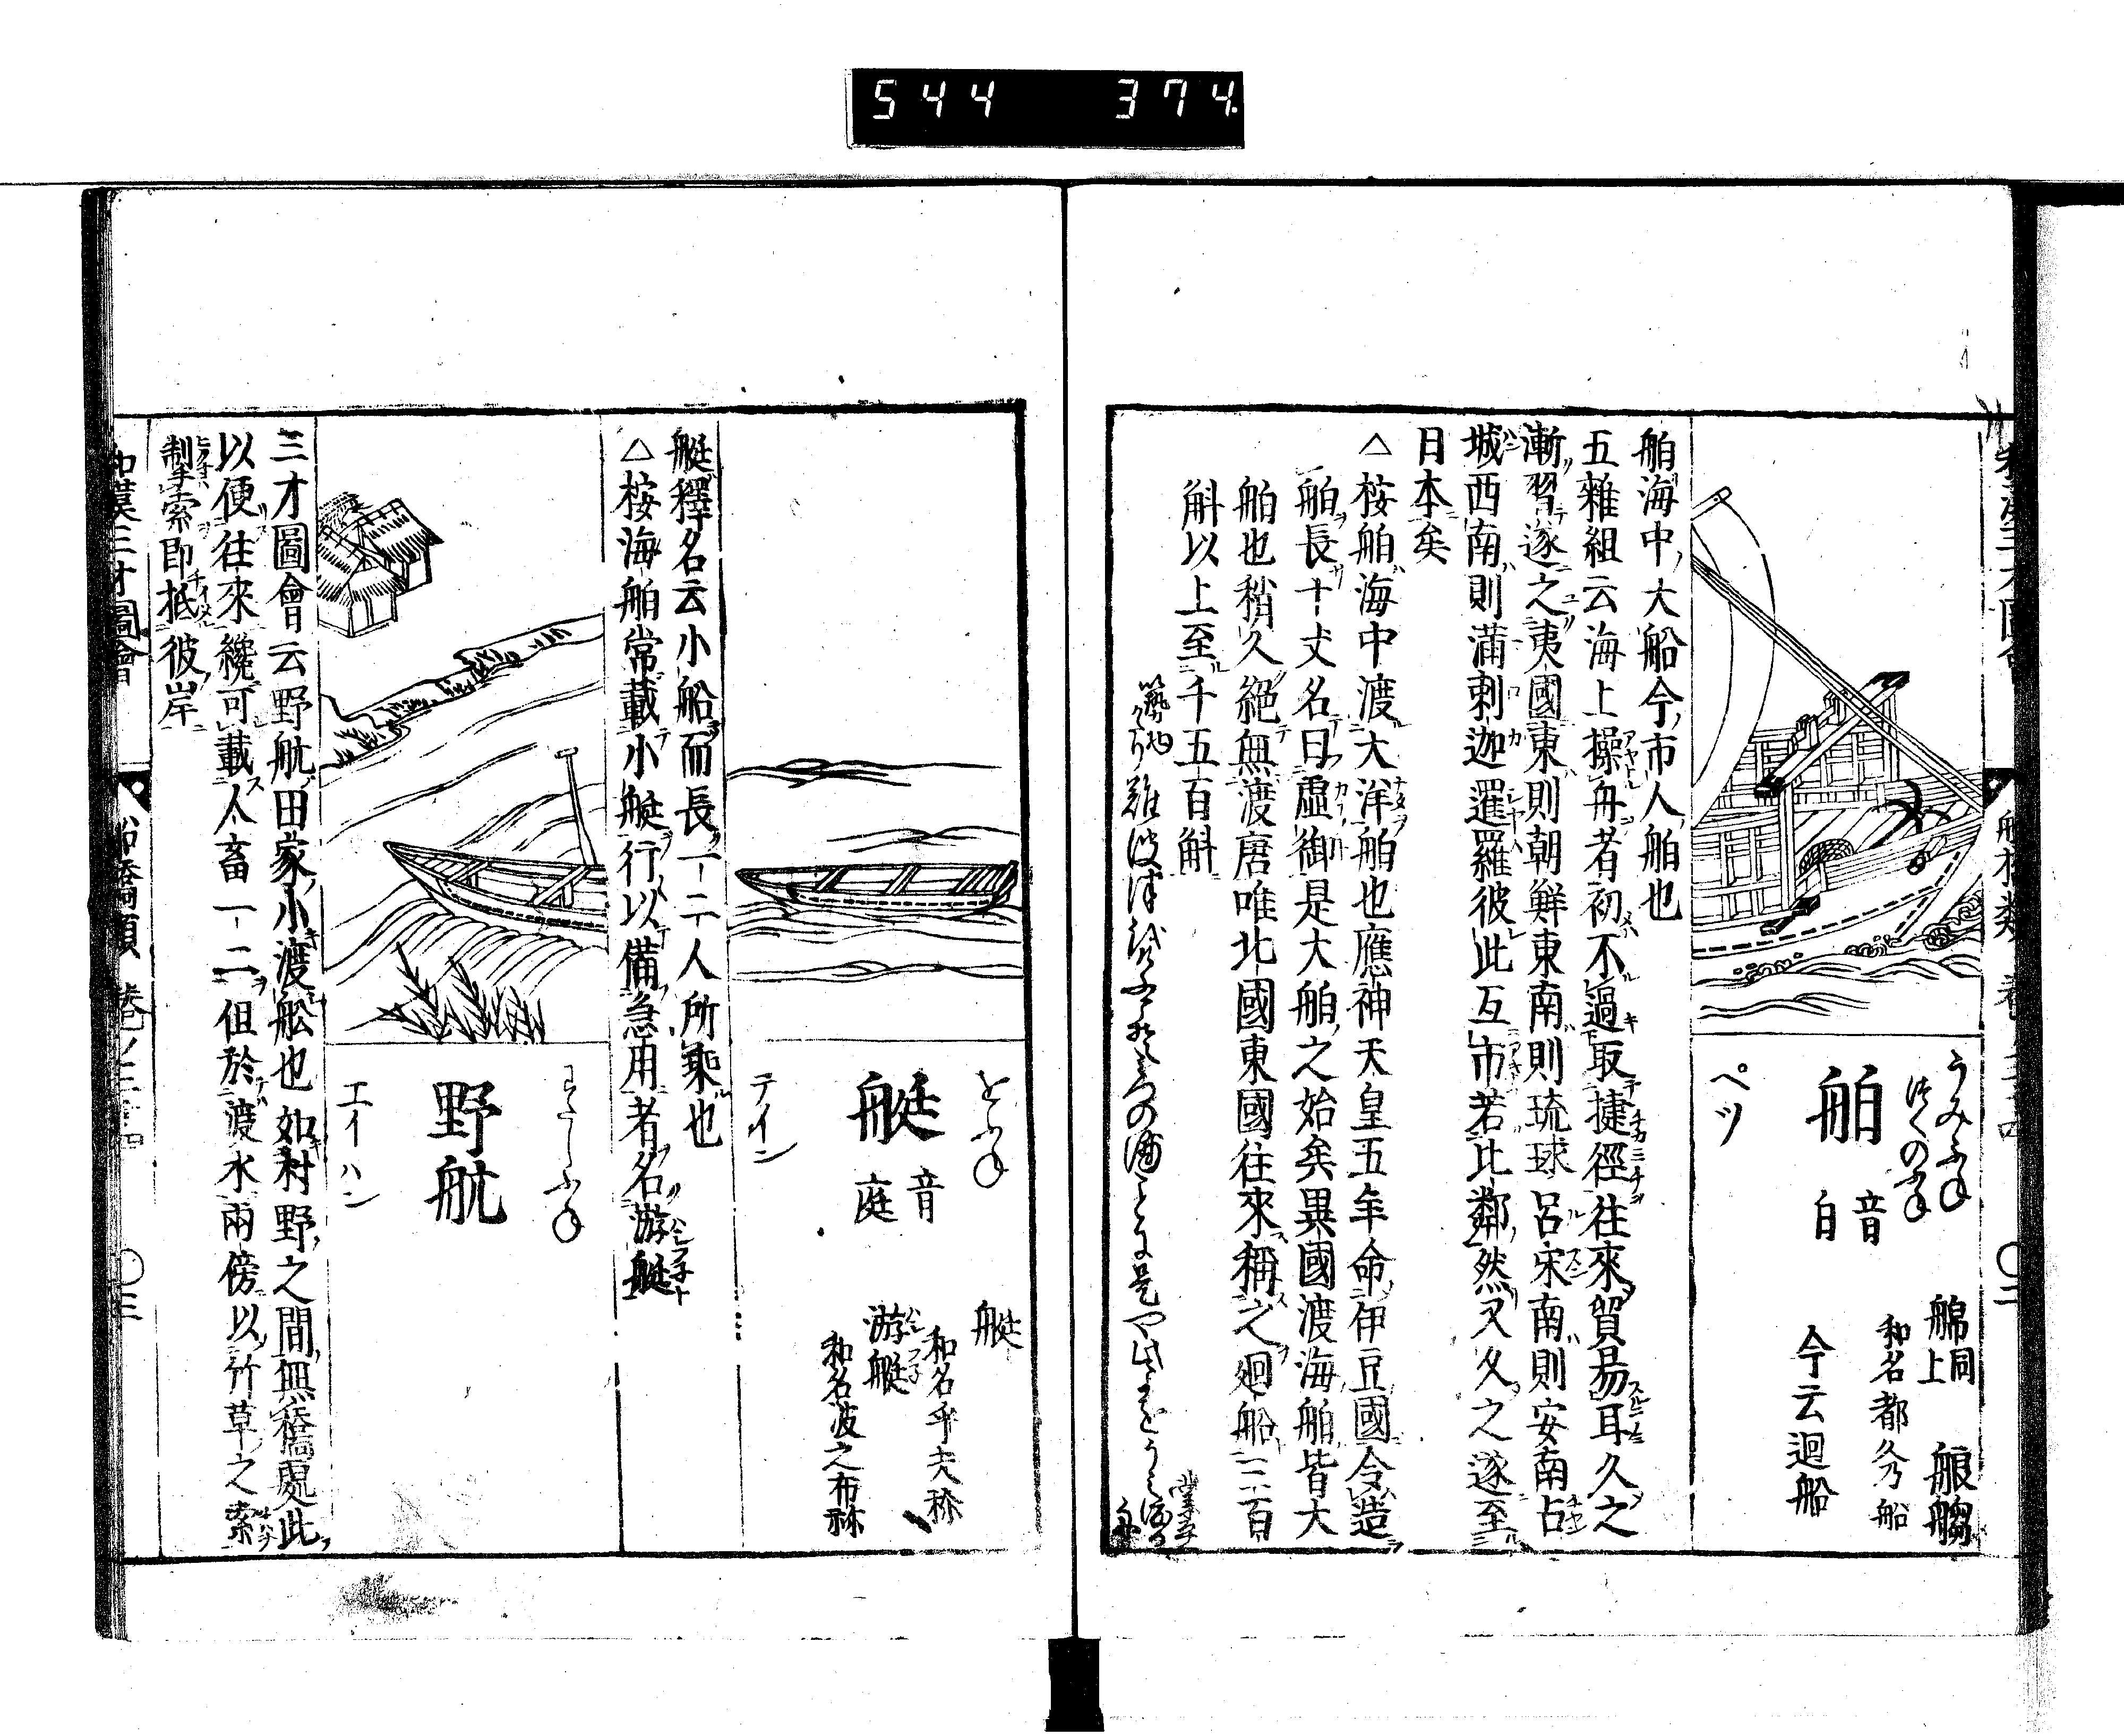 544 374
うみふね
つくのふね
舶 音白
ペツ
艊同上 艆艒
和名都久乃船
今云廻船
舶海中大船今市人舶也
五雜組云海上操舟者初不過取捷徑往來貿易耳久之
漸習遂之夷國東則朝鮮東南則琉球呂宋南則安南占
城西南則滿剌迦暹羅彼此互市若比鄰然又久之遂至
日本矣
△桉舶海中渡大洋舶也應神天皇五年命伊豆國令造
舶長十丈名曰虛御是大舶之始矣異國渡海舶皆大
舶也稍久絕無渡唐唯北國東國往來稱之廻船二三百
斛以上至千五百斛
をふね
艇 音庭
テイン
艇 和名乎夫祢
游艇 和名波之布祢
艇釋名云小船而長一二人所乘也
△桉海舶常載小艇行以備急用者名游艇
わたしふね
野航
エイ ハン
三才圖會云野航田家小渡舩也如村野之間無橋處此
以便往來纔可載人畜一二但於渡水兩傍以竹草之索
制手索即抵彼岸
和漢三才圖會
船橋類 卷之三十四
〇三